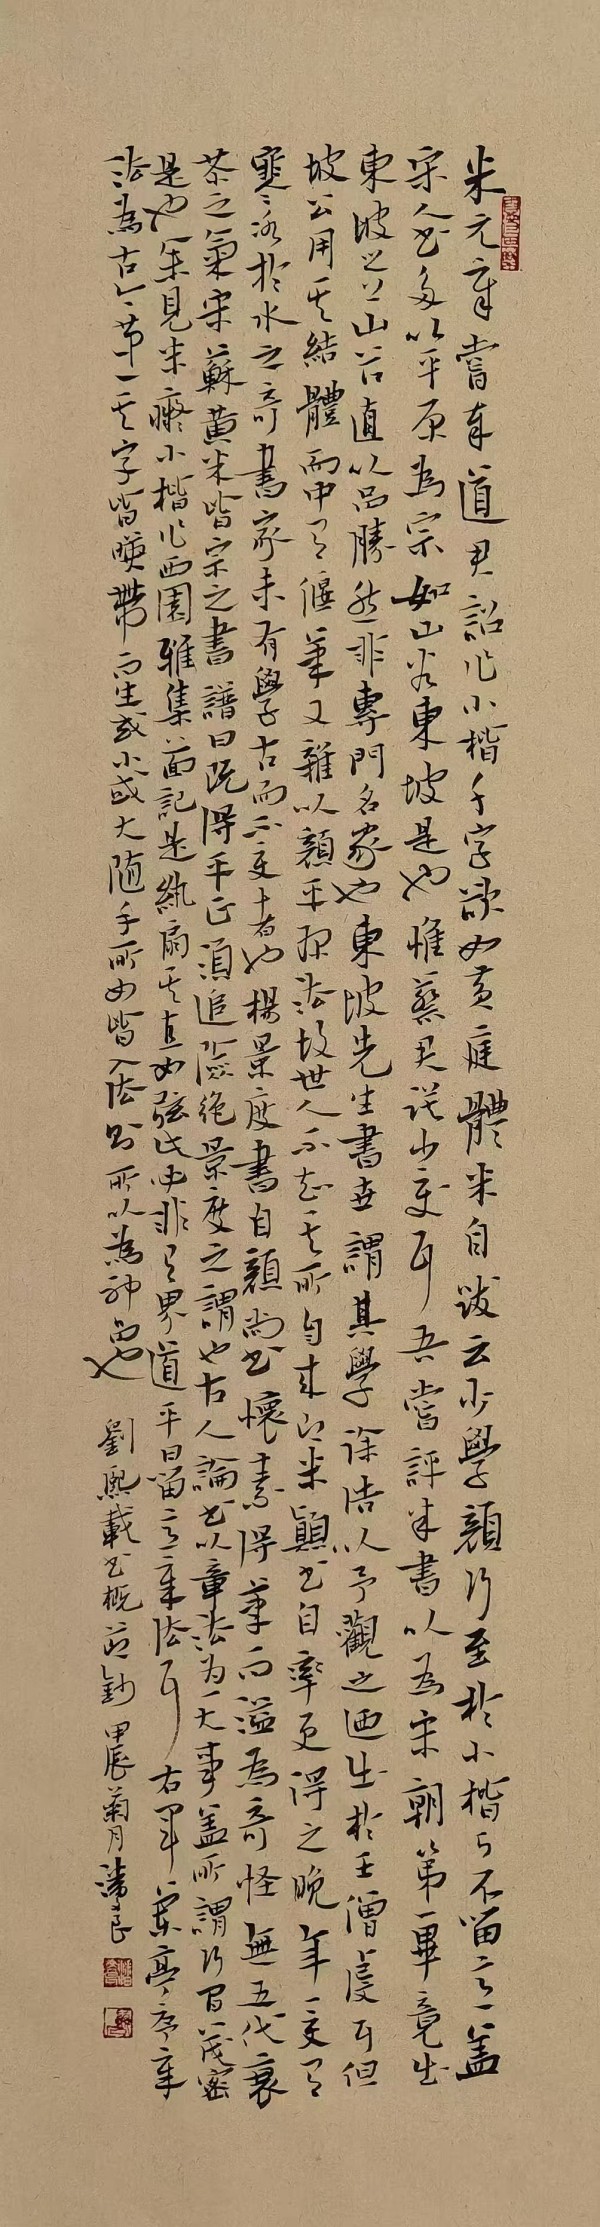 米元章嘗奉道君詔作小楷千字欲如黃庭體米自跋云少學顏行至於小楷了不留意蓋
宋人書多以平原為宗如山谷東坡是也惟蔡君謨少變耳吾嘗評米書以為宋朝第一畢竟出
東坡之上山谷直以品勝然非專門名家也東坡先生書世謂其學徐浩以予觀之迺出於王僧虔耳但
坡公用其結體而中有偃筆又雜以顏平原法故世人不知其所自來即米顛書自率更得之晚年一變有
冰寒於水之奇書家未有學古而不變者也楊景度書自顏尚書懷素得筆而溢為奇怪無五代衰
苶之氣宋蘇黃米皆宗之書譜曰既得平正須追險絕景度之謂也古人論書以章法為一大事蓋所謂行間茂密
是也余見米癡小楷作西園雅集圖記是紈扇其直如弦此必非有界道平日留意章法耳右軍蘭亭序章
法為古今第一其字皆映帶而生或小或大隨手所如皆入法則所以為神品也
劉熙載書概句鈔 甲辰菊月 潘良